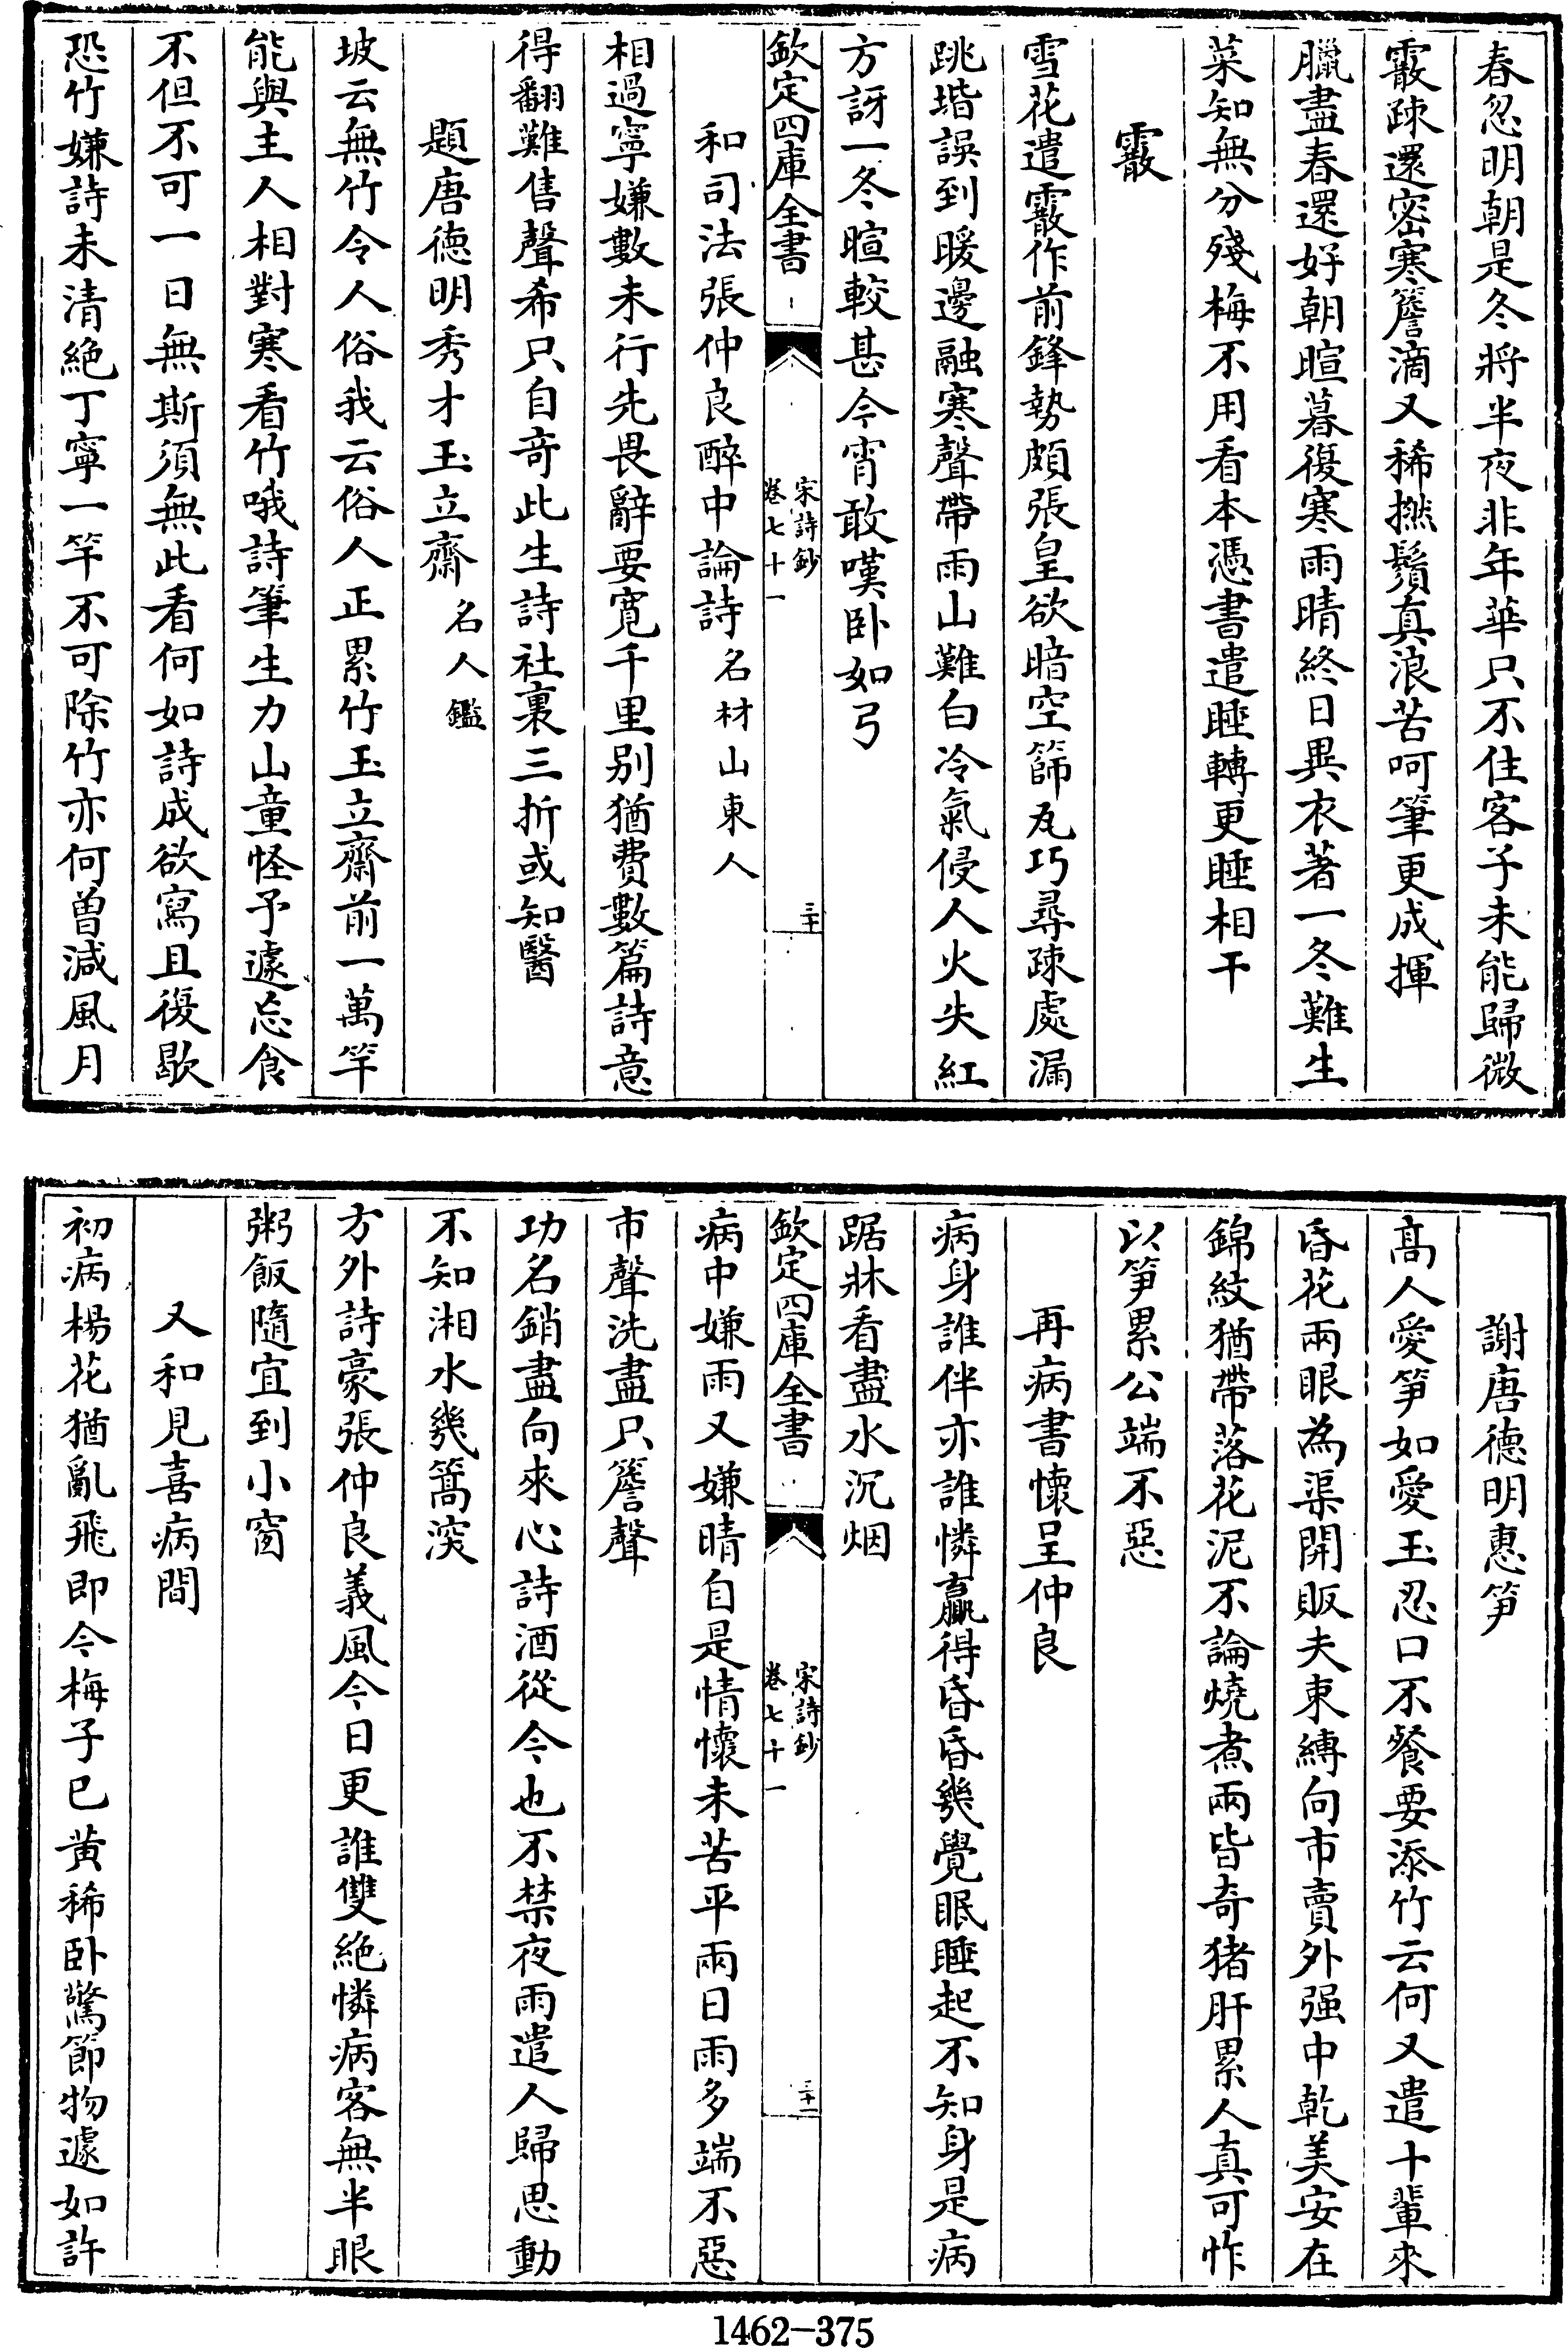 春忽明朝是冬將半夜非年華只不住客子未能歸微
霰疎還密寒簷滴又稀撚鬚真浪苦呵筆更成揮
臘盡春還好朝暄暮復寒雨晴終日異衣著一冬難生
菜知無分殘梅不用看本憑書遣睡轉更睡相干
霰
雪花遣霰作前鋒勢頗張皇欲暗空篩瓦巧尋疎處漏
跳堦誤到暖邊融寒聲帶雨山難白冷氣侵人火失紅
方訝一冬暄較甚今宵敢嘆卧如弓
欽定四庫全書
宋詩鈔
卷七十一
三十
和司法張仲良醉中論詩名材山東人
相過寧嫌數未行先畏辭要寛千里别猶費數篇詩意
得翻難售聲希只自奇此生詩社裏三折或知醫
題唐德明秀才玉立齋名人鑑
坡云無竹令人俗我云俗人正累竹玉立齋前一萬竿
能與主人相對寒看竹哦詩筆生力山童怪予遽忘食
不但不可一日無斯須無此看何如詩成欲寫且復歇
恐竹嫌詩未清絶丁寧一竿不可除竹亦何曽減風月
謝唐德明惠笋
髙人愛笋如愛玉忍口不餐要添竹云何又遣十輩來
昏花兩眼為渠開販夫束縛向市賣外强中乾美安在
錦紋猶帶落花泥不論燒煮兩皆奇猪肝累人真可怍
以笋累公端不惡
再病書懷呈仲良
病身誰伴亦誰憐贏得昏昏幾覺眠睡起不知身是病
踞牀看盡水沉烟
欽定四庫全書
宋詩鈔
卷七十一
三十一
病中嫌雨又嫌晴自是情懷未苦平兩日雨多端不惡
市聲洗盡只簷聲
功名銷盡向來心詩酒從今也不禁夜雨遣人歸思動
不知湘水幾篙深
方外詩豪張仲良義風今日更誰雙絶憐病客無半眼
粥飯隨宜到小窗
又和見喜病間
初病楊花猶亂飛即今梅子已黄稀卧驚節物遽如許
1462-375